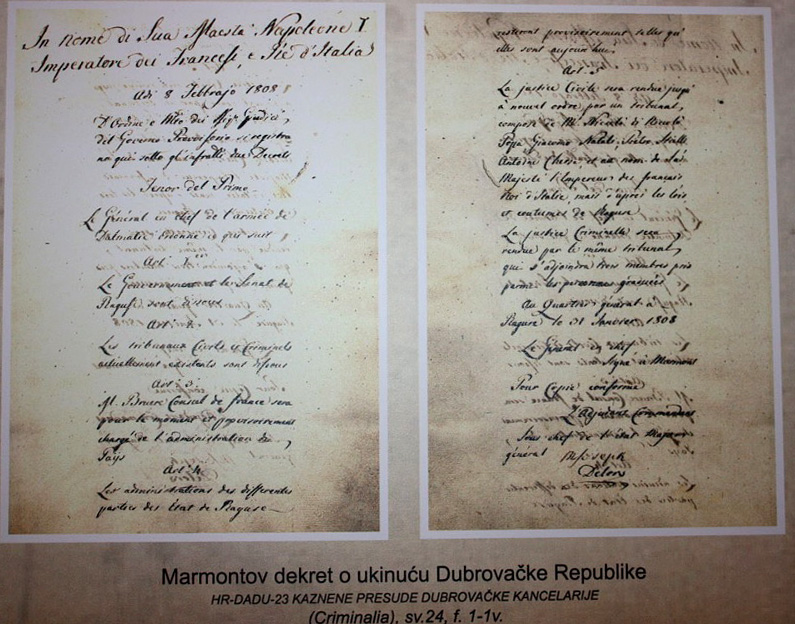 In nome di Sua Maestà Napoleone I
Imperatore dei Francesi, e Rè d'Italia
Adi 8 Febbrajo 1808
D'Ordine e dei Giudici,
del Governo Provvisorio si registra
no qui sotto gl'infratti due Decreti
Tenor del Primo
Le Général en chef de l'armée de
Dalmatie ordonne ce qui suit
Art. 1
Le Gouvernement et le Senat de
Raguse sont dissous
Art. 2
Les tribunaux Civils et Criminels
actuellement existents sont dissous
Art. 3
M. Bruere Consul de france sera
pour le moment et provisoirement
chargé de l'administration du
Païs
Art. 4
Les administrations des differentes
parties des Etat de Raguse
resteront provisoirement telles qu'
elles sont aujourdhui
Art. 5
La justice Civile sera rendue jusqu'
à nouvel ordre, par un tribunal,
composé de Mr Nicolò di Nicolò
Pozza Giacomo Natali, Pietro Stulli
Antoine et au nom de Sa
Majesté l'Empereur des français
Roi d'Italie, mais d'après les lois
et coutumes de Raguse
La justice Criminelle sera
rendue par le même tribunal,
que s'adjoindra trois membres pris
parmi les personnes
Au Quartier général à
Raguse le 31 Janvier 1808
Le Général en chef
Signé Marmont
Pour Copie conforme
L'Adjoint Commandant
Sous chef de l'état Major
général
Delort
Marmontov dekret o ukinuću Dubrovačke Republike
HR-DADU-23 KAZNENE PRESUDE DUBROVAČKE KANCELARIJE
(Criminalia), sv.24, f. 1-1v.